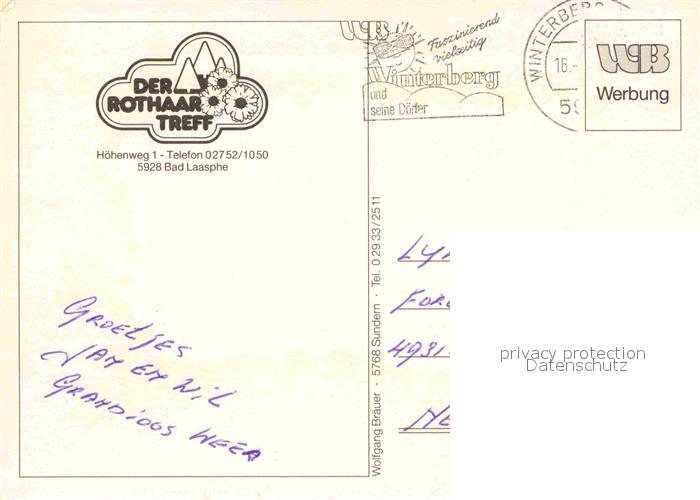 WB
Faszinierend
vielseitig
Winterberg
und
seine Dörfer
WINTERBERG
16.-
59
WB
Werbung
DER
ROTHAAR
TREFF
Höhenweg 1 - Telefon 02752/1050
5928 Bad Laasphe
Groetjes
Jan en Wil
Grandioos weer
Wolfgang Bräuer · 5768 Sundern · Tel. 0 29 33 / 25 11
4931
privacy protection
Datenschutz